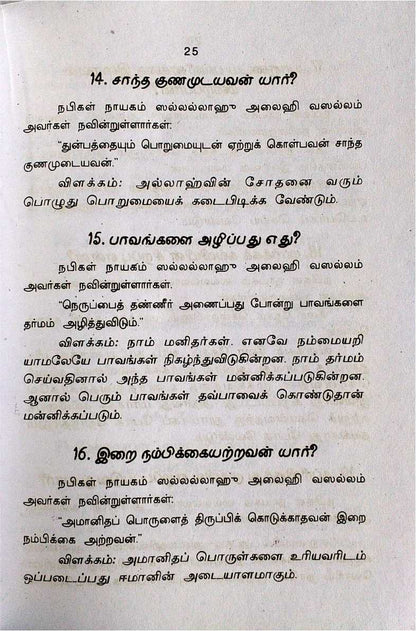 25
14. சாந்த குணமுடயவன் யார்?
நபிகள் நாயகம் ஸல்லல்லாஹு அலைஹி வஸல்லம்
அவர்கள் நவின்றுள்ளார்கள்:
"துன்பத்தையும் பொறுமையுடன் ஏற்றுக் கொள்பவன் சாந்த
குணமுடையவன்."
விளக்கம்: அல்லாஹ்வின் சோதனை வரும்
பொழுது பொறுமையைக் கடைபிடிக்க வேண்டும்.
15. பாவங்களை அழிப்பது எது?
நபிகள் நாயகம் ஸல்லல்லாஹு அலைஹி வஸல்லம்
அவர்கள் நவின்றுள்ளார்கள்.
"நெருப்பைத் தண்ணீர் அணைப்பது போன்று பாவங்களை
தர்மம் அழித்துவிடும்."
விளக்கம்: நாம் மனிதர்கள். எனவே நம்மையறி
யாமலேயே பாவங்கள் நிகழ்ந்துவிடுகின்றன. நாம் தர்மம்
செய்வதினால் அந்த பாவங்கள் மன்னிக்கப்படுகின்றன.
ஆனால் பெரும் பாவங்கள் தவ்பாவைக் கொண்டுதான்
மன்னிக்கப்படும்.
16. இறை நம்பிக்கையற்றவன் யார்?
நபிகள் நாயகம் ஸல்லல்லாஹு அலைஹி வஸல்லம்
அவர்கள் நவின்றுள்ளார்கள்:
"அமானிதப் பொருளைத் திருப்பிக் கொடுக்காதவன் இறை
நம்பிக்கை அற்றவன்."
விளக்கம்: அமானிதப் பொருள்களை உரியவரிடம்
ஒப்படைப்பது ஈமானின் அடையாளமாகும்.